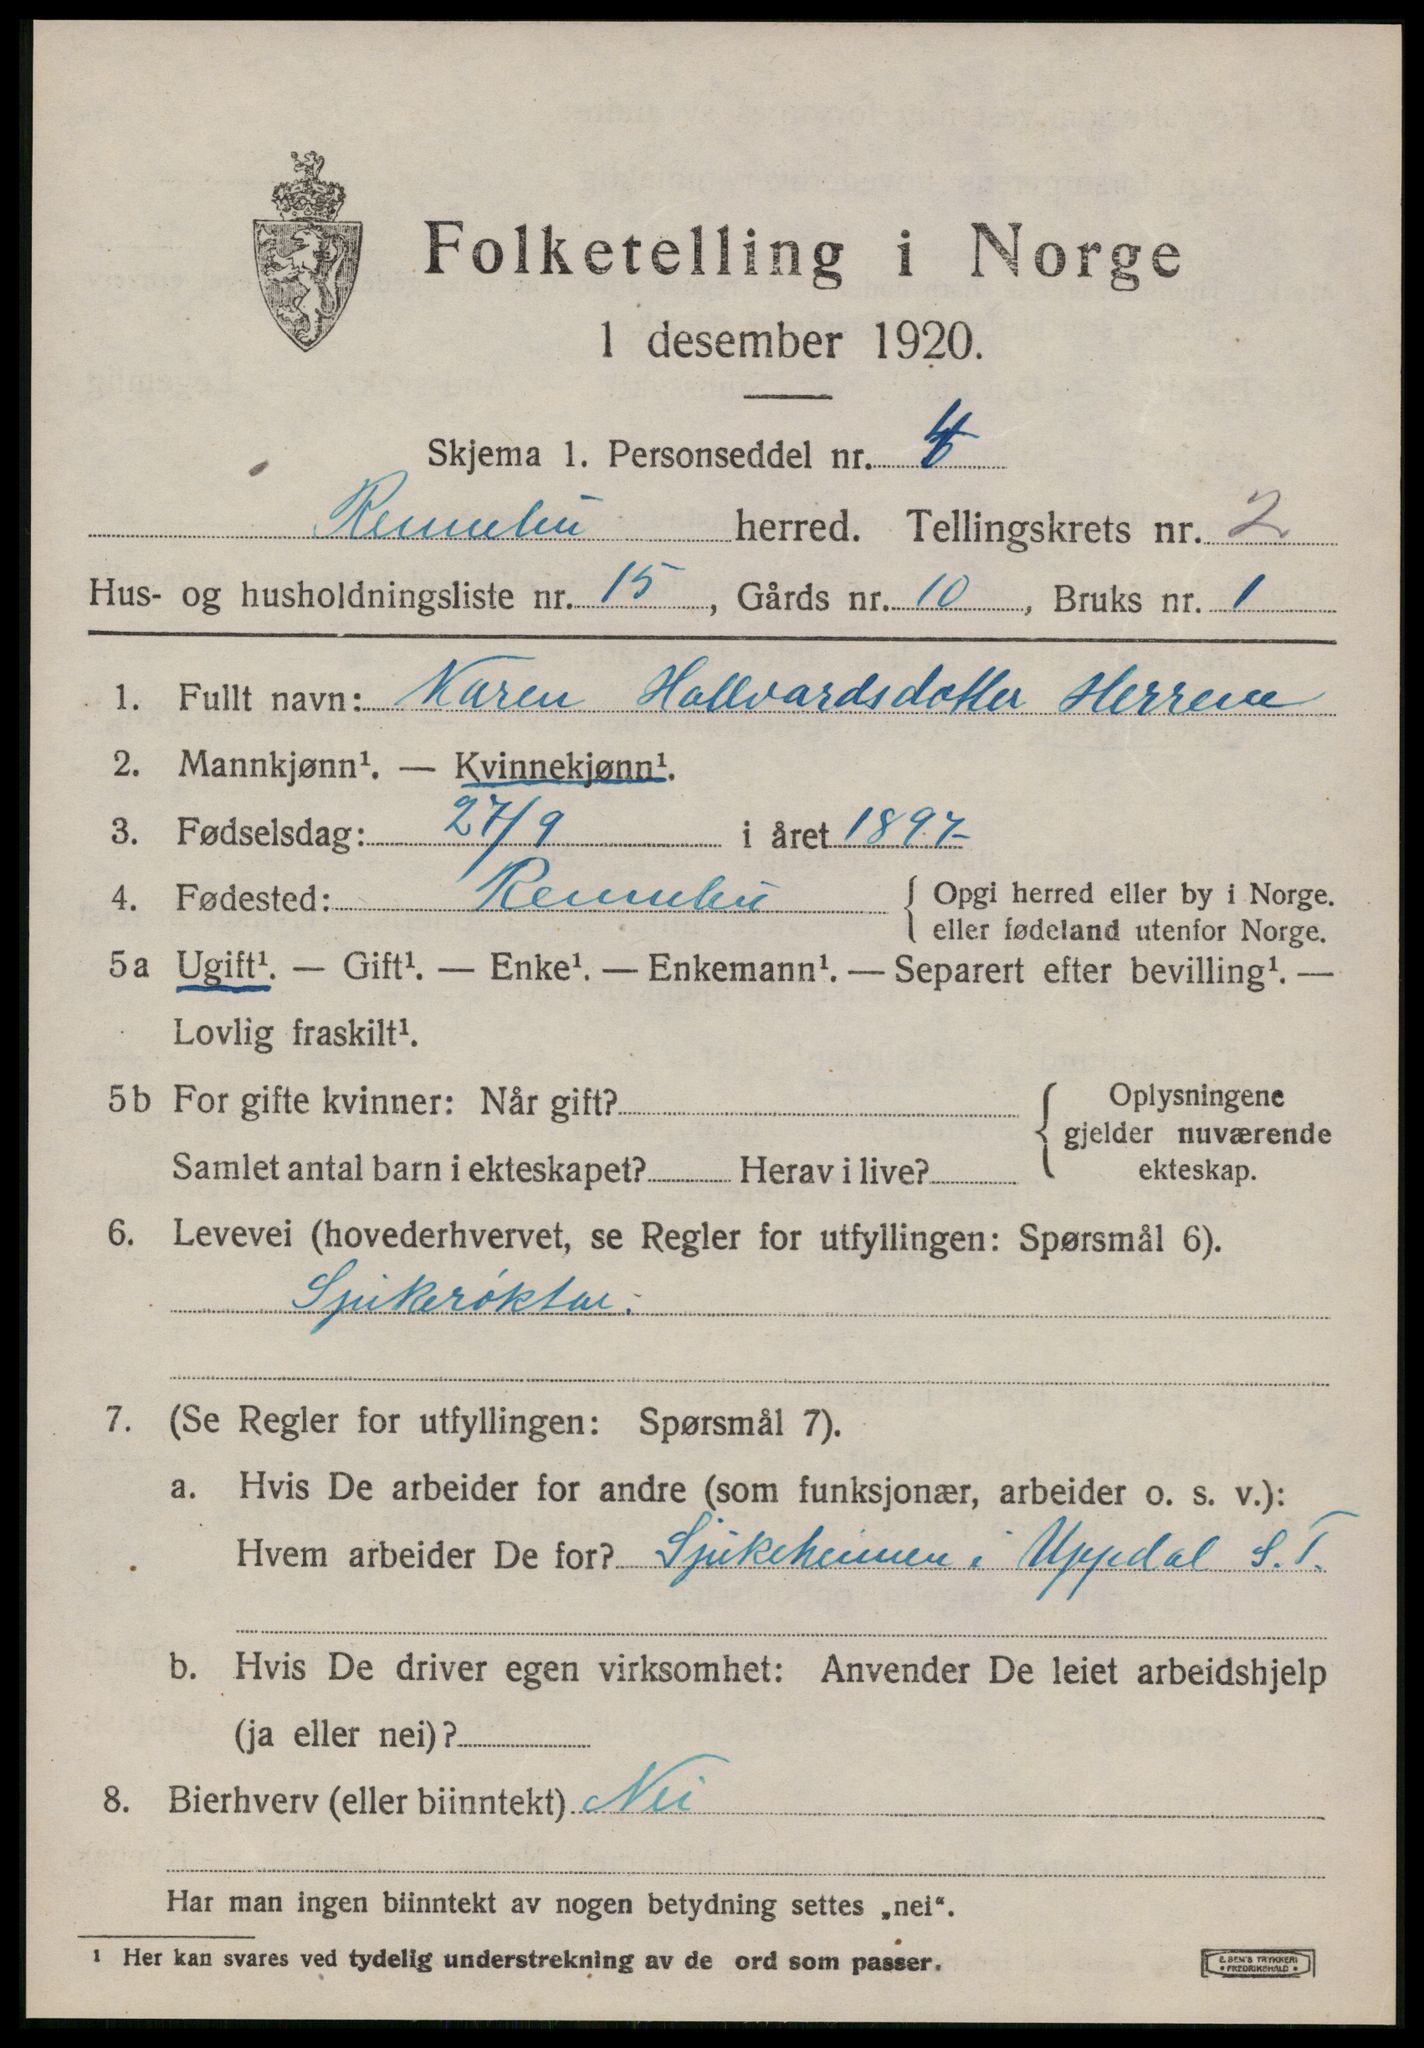 Folketelling i Norge
1 desember 1920.
Skjema 1. Personseddel nr. 4
Rennebu herred. Tellingskrets nr. 2
Hus- og husholdningsliste nr. 15, Gårds nr. 10, Bruks nr. 1
1. Fullt navn: Karen Hallvardsdotter Herrem
2. Mannkjønn¹. — Kvinnekjønn¹.
3. Fødselsdag: 27/9 i året 1897
4. Fødested: Rennebu { Opgi herred eller by i Norge.
eller fødeland utenfor Norge.
5a Ugift¹. — Gift¹. — Enke¹. — Enkemann¹. — Separert efter bevilling¹. —
Lovlig fraskilt¹.
5b For gifte kvinner: Når gift?
Samlet antal barn i ekteskapet? Herav i live?
{ Oplysningene
gjelder nuværende
ekteskap.
6. Levevei (hovederhvervet, se Regler for utfyllingen: Spørsmål 6).
Sjukerøktar.
7. (Se Regler for utfyllingen: Spørsmål 7).
a. Hvis De arbeider for andre (som funksjonær, arbeider o. s. v.):
Hvem arbeider De for? Sjukeheimen i Uppdal S.T.
b. Hvis De driver egen virksomhet: Anvender De leiet arbeidshjelp
(ja eller nei)?
8. Bierhverv (eller biinntekt) Nei
Har man ingen biinntekt av nogen betydning settes „nei“.
¹ Her kan svares ved tydelig understrekning av de ord som passer.
E. SEM'S TRYKKERI
• FREDRIKSHALD •